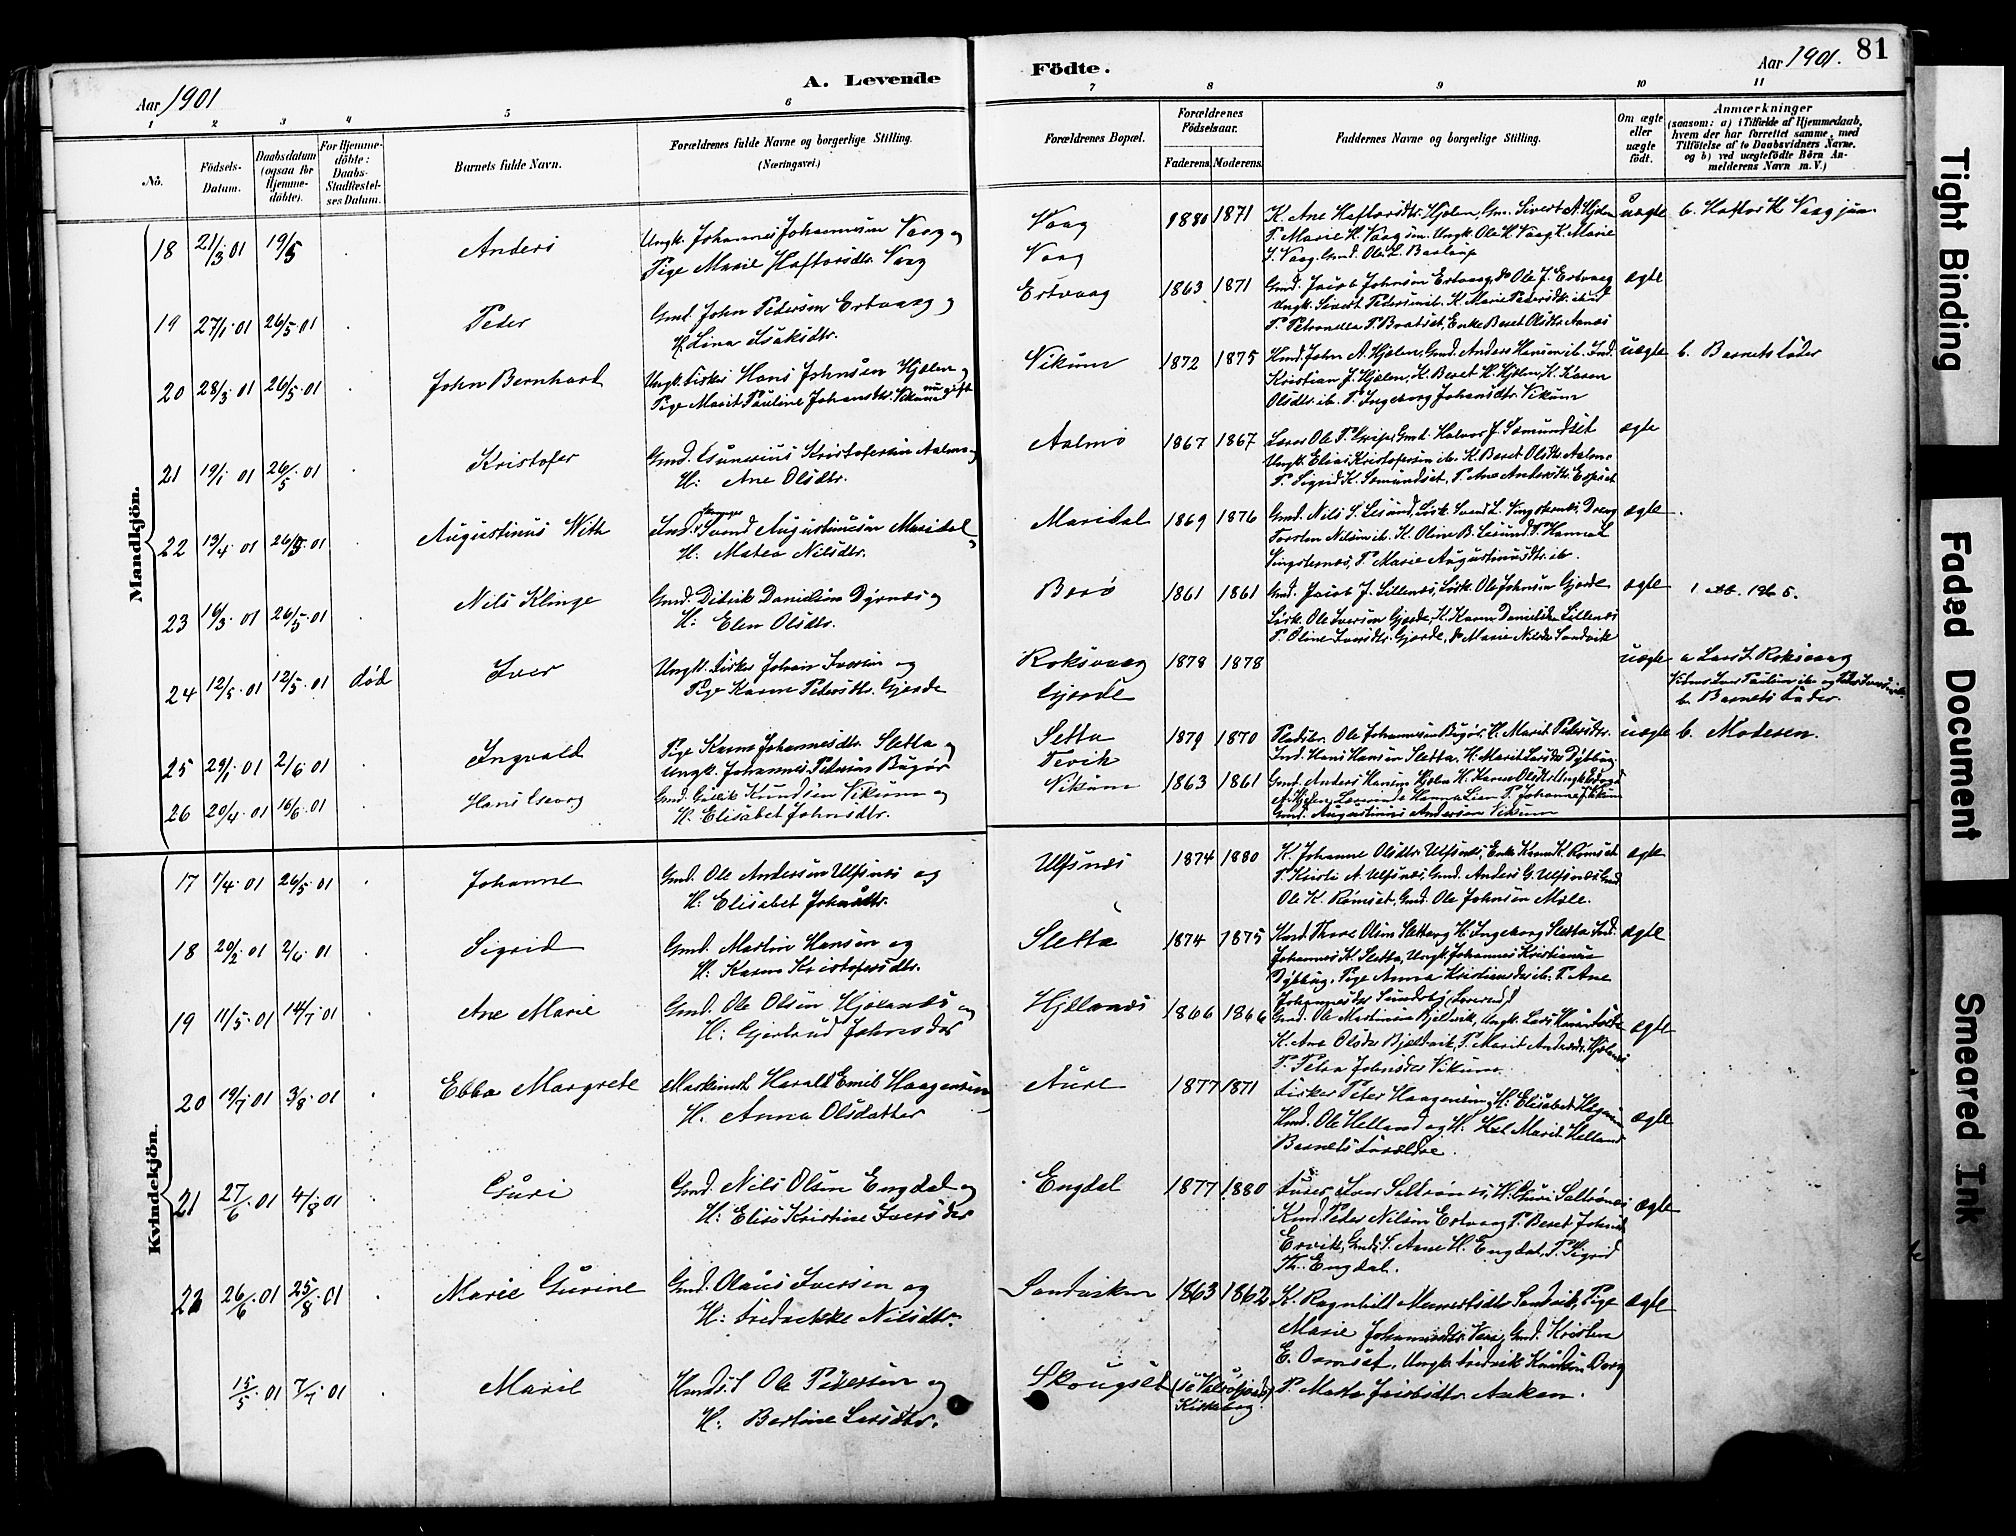 81
A. Levende
Födte.
Aar 1901
Aar 1901.
1 2 3 4 5 6 7 8 9 10 11
No.
Födsels-
Datum.
Daabsdatum
(ogsaa for
Hjemme-
döbte).
For Hjemme-
döbte:
Daabs-
Stadfæstel-
ses Datum.
Barnets fulde Navn.
Forældrenes fulde Navne og borgerlige Stilling.
(Næringsvei.)
Forældrenes Bopæl.
Forældrenes
Födselsaar.
Faderens. Moderens.
Faddernes Navne og borgerlige Stilling.
Om ægte
eller
uægte
födt.
Anmærkninger
(saasom: a) i Tilfælde af Hjemmedaab,
hvem der har forrettet samme, med
Tilföielse af to Daabsvidners Navne,
og b) ved uægtefödte Börn An-
melderens Navn m. V.)
Mandkjön.
18 21/3 01 19/5 Anders
Ungk. Johannes Johannesen Vaag og
Pige Marie Haftorsdtr. Vaag
Vaag
Vaag
1880 1871
K. Ane Haftorsdtr. Hjølen, Gm. Sivert A. Hjølen
P. Marie H. Vaag Ungk. Ole H. Vaag K. Marie
S. Vaag. Gmd. Ole L.
uægte
b. Haftor K. Vaag
19 27/1 01 26/5 01 Peder
Gmd. John Pedersen Ertvaag og
H. Lina Isaksdtr.
Ertvaag 1863 1871
Gmd. Jacob Johnsen Ertvaag, do Ole J. Ertvaag
Ungk. Sivert Pedersen ib. K. Marie Pedersdtr. ibid
P. Petronella P. Enke Beret Olsdtr. Aanes
ægte
20 28/3 01 26/5 01 John Bernhard
Ungk. Fisker Hans Johnsen Hjølen og
Pige Marit Pauline Johansdtr. Vikum
Vikum 1872 1875
Kmd. John A. Hjølen, Gmd. Anders Hansen ib. Ind.
Kristian J. Hjølen, K. Beret H. Hjølen, K. Karen
Olsdtr. ib. P. Ingeborg Johansdtr. Vikum
uægte b. Barnets Fader
21 19/1 01 26/5 01 Kristofer
Gmd. Kristofersen Aalmo og
H: Ane Olsdtr.
Aalmo 1867 1867
Lærer Ole P. Gmd. Halvor J. Semundset
Ungk. Elias Kristofersen ib. K. Beret Olsdtr. Aalmo
P. Sigrid K. Semundset, P. Ane Andersdtr. Espset
ægte
22 13/4 01 26/5 01 Augustinus With
Ind. Svend Augustinusen Maridal
H. Matea Nilsdtr.
Maridal 1869 1876
Gmd. Nils S. Lesund, Lösk. Svend L. Singsternes, Dreng
Torsten Nilsen ib. K. Oline B. Lesund, P. Hanna L.
Singsternes, P. Marie Augustinusdtr. ib.
ægte
23 16/3 01 26/5 01 Nils Klinge
Gmd. Didrik Danielsen Dyrnes og
H: Elen Olsdtr.
Berö 1861 1861
Gmd. Jacob J. Lillenes, Lösk. Ole Johnsen Gjerde
Lösk. Ole Iversen Gjerde, K. Karen Danielsdtr. Lillenes
P. Oline Iversdtr. Gjerde, do Marie Nilsdtr. Sandvik
ægte
24 12/5 01 12/5 01 död Iver
Ungk. Fisker Johan Iversen og
Pige Karen Pedersdtr. Gjerde
Roksvaag
Gjerde
1878 1878
uægte
a Lars I. Roksvaag
b. Barnets Fader
25 29/1 01 2/6 01 Ingvald
Pige Karen Johannesdtr. Sletta og
Ungk. Johannes Petersen Bugör
Sletta
Tevik
1879 1870
Pladsbr. Ole Johannesen Bugör, H. Marit Petersdtr.
Ind. Hans Hansen Sletta, H. Marit Larsdtr. Dybvaag
uægte b. Moderen.
26 20/4 01 16/6 01 Hans
Gmd. Gullik Knudsen Vikum og
H. Elisabet Johnsdtr.
Vikum 1863 1861
Gmd. Anders Hansen Hjølen H. Karen Olsdtr.
P. Johanna J. Vikum
Gmd. Augustinus Andersen Vikum
Kvindekjön.
17 1/4 01 26/5 01 Johanne
Gmd. Ole Andersen Ulfsnes og
H: Elisabet Johnsdtr.
Ulfsnes 1874 1880
K. Johanne Olsdtr. Ulfsnes, Enke Karen K. Römset
P. Kristi A. Ulfsnes, Gmd. Anders G. Ulfsnes Gmd.
Ole K. Römset, Gmd. Ole Johnsen Mæle.
ægte
18 20/2 01 2/6 01 Sigrid
Gmd. Martin Hansen og
H: Karen Kristofersdtr.
Sletta 1874 1875
Kmd. Thore Olsen Sletta og H. Ingeborg Sletta Ind.
Johannes K. Sletta, Ungk. Johannes Kristiansen
Dybvaag, Pige Anna Kristiansdtr ib. P. Ane
Johannesdtr Sundsby
ægte
19 11/5 01 14/7 01 Ane Marie
Gmd. Ole Olsen Hjælnes og
H: Gjertrud Johnsdtr
Hjellenes 1866 1866
Gmd. Ole Martinsen Bjelkvik, Ungk. Lars Hansen
K. Ane Olsdtr Bjelkvik, P. Marit Andersdtr. Hjelnes
P. Petra Johnsdtr Vikum.
ægte
20 19/7 01 3/8 01 Ebba Margrete
Maskinist Harald Emil Haagensen
H. Anna Olsdatter
Aure 1877 1871
Fisker Peter Haagensen, H: Elisabet
Kmd. Ole Helland og H. Marit Helland
Barnets Forældre.
ægte
21 27/6 01 4/8 01 Guri
Gmd. Nils Olsen Engdal og
H: Elise Kristine Iversdtr
Engdal 1877 1880
Iver Saltrönes, H: Guri Saltrönes
Kmd. Peder Nilsen Ertvaag P. Beret Johnsdtr
Ervik, Gmd. Ane H. Engdal, P. Sigrid
Th. Engdal.
ægte
22 26/6 01 25/8 01 Marie Gurine
Gmd. Olaus Iversen og
H: Fredrikke Nilsdtr.
Sandvikan 1863 1862
K. Ragnhild Sandvik, Pige
Marie Johannesdtr. Gmd. Kristen
E. Ormset, Ungk. Fredrik Knudsen
P. Marta Jacobsdtr. Aakan.
ægte
15/5 01 7/7 01 Marie
Ole Pedersen og
H. Bertine Larsdtr.
Skougset (se Valsöfjords
Kirkebog)
Tight Binding
Faded Document
Smeared Ink